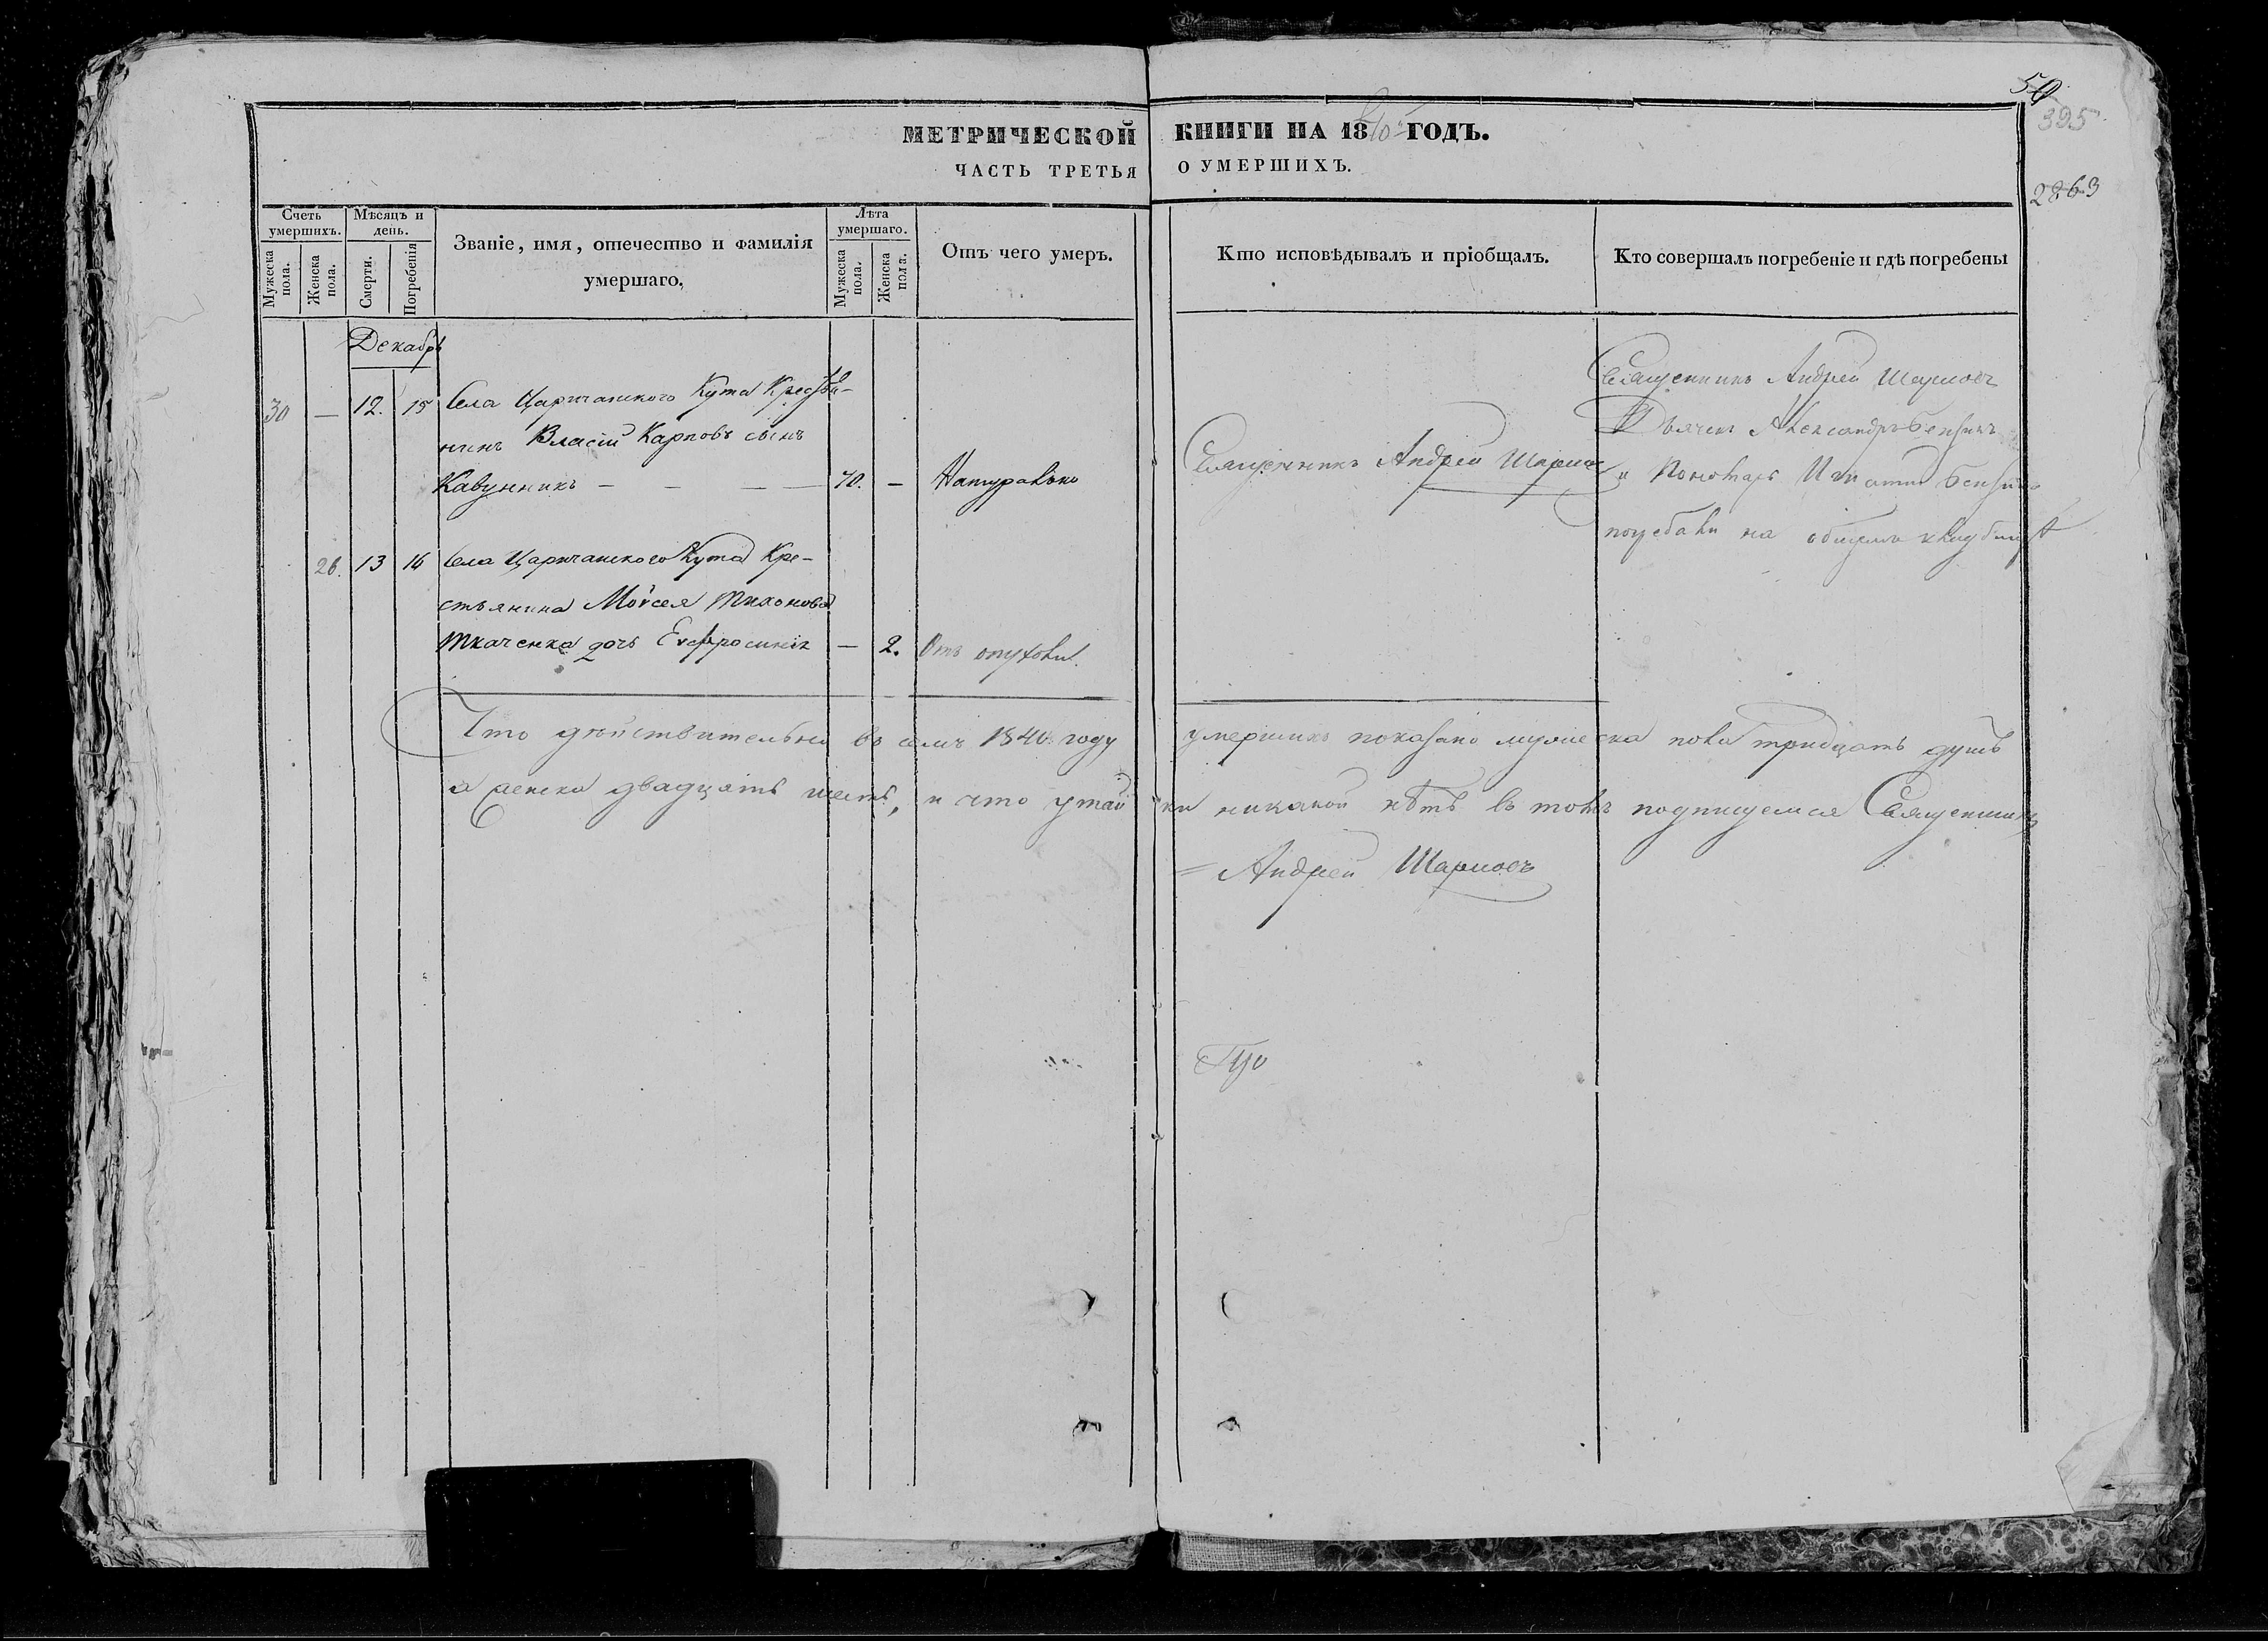 50
395
2863
МЕТРИЧЕСКОЙ КНИГИ НА 1840 ГОДЪ.
ЧАСТЬ ТРЕТЬЯ О УМЕРШИХЪ.
Счетъ умершихъ.
Мужеска пола.
Женска пола.
Мѣсяцъ и день.
Смерти.
Погребенія
Званіе, имя, отечество и фамилія
умершаго,
Лѣта умершаго.
Мужеска пола.
Женска пола.
Отъ чего умеръ.
Кто исповѣдывалъ и пріобщалъ.
Кто совершалъ погребеніе и гдѣ погребены
Декабрь
30 — 12. 15 Села Царичанского Кута Крестья-
нинъ Власій Карповъ сынъ
Кавунникъ — — — — 70. — Натурально
Священникъ Андрей
Священникъ Андрей
Дьячекъ Александръ
и Пономарь
погребали на общемъ кладбищѣ
26. 13 16 Села Царичанского Кута Кре-
стьянина Мойсея Тихонова
Ткаченка дочь Евфросинія — 2. Отъ опухоли.
Что дѣйствительно въ семъ 1840 году умершихъ показано мужеска пола тридцать душъ
а женска двадцять шесть, и что утайки никакой нѣтъ въ томъ подписуемся Священникъ
= Андрей